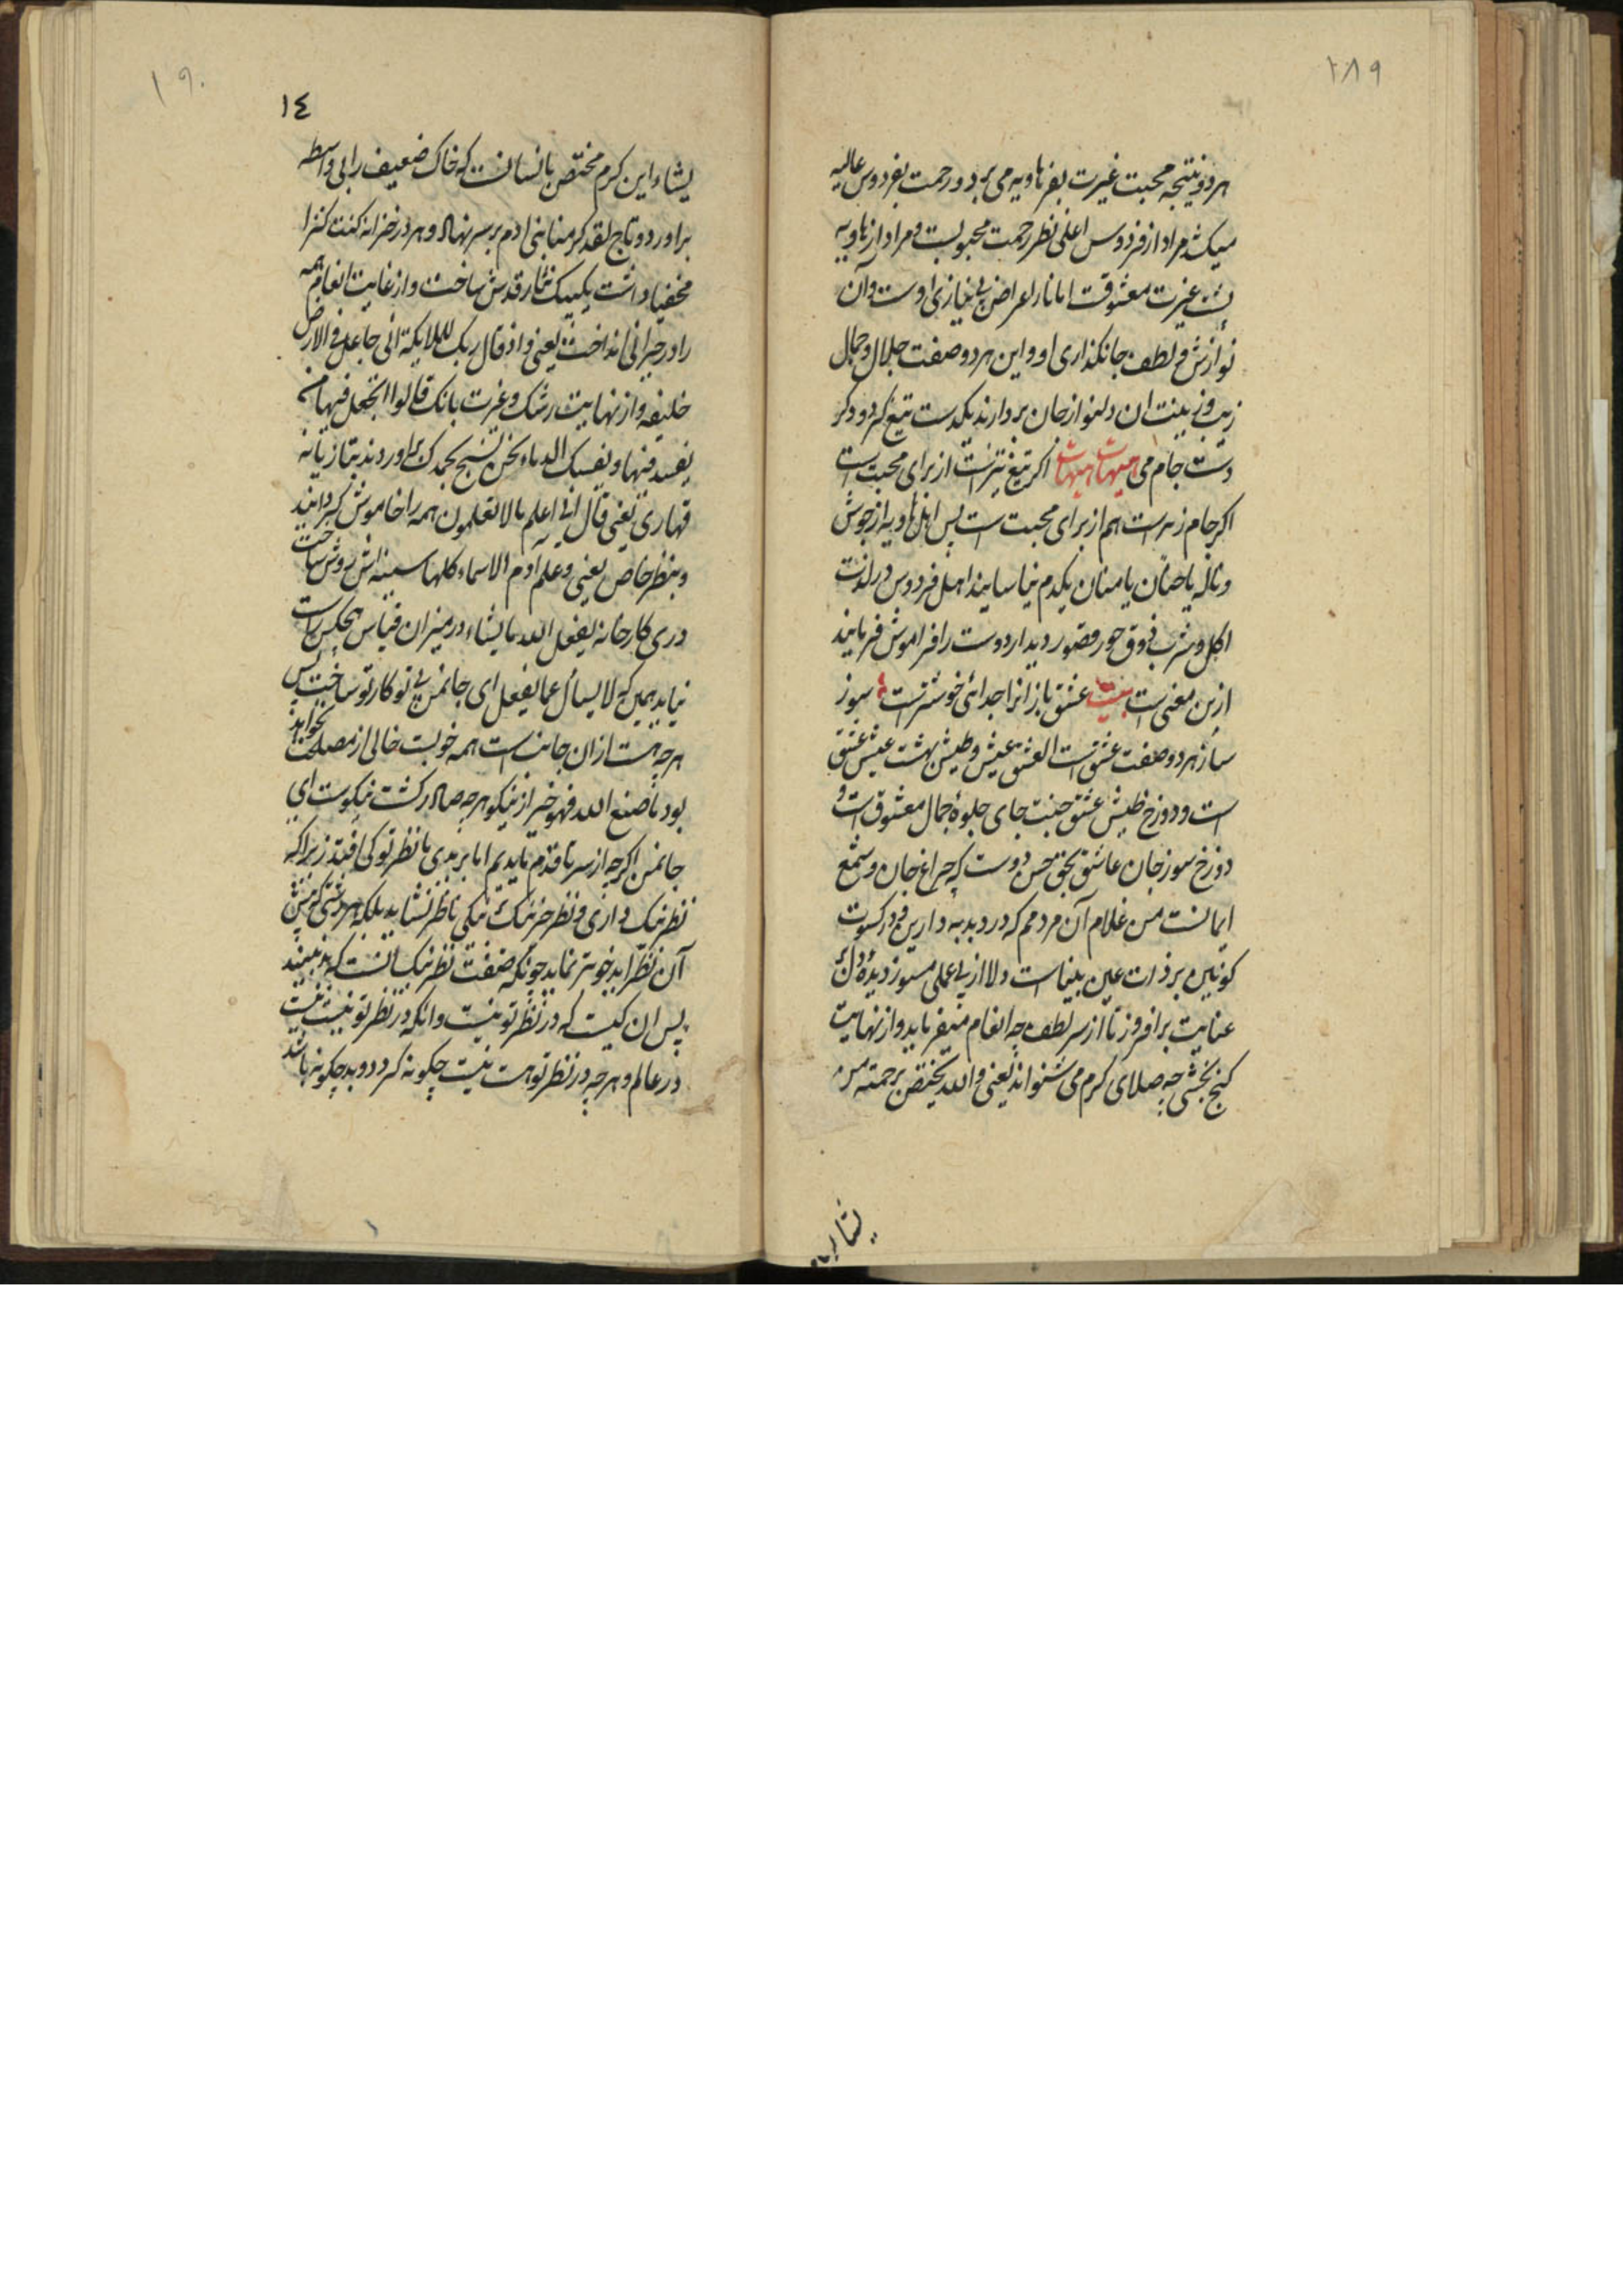 ١٨٩
هر دو نتیجه محبت غیرت بقر هاویه می برد و رحمت بفردوس عالیه
میکشد مراد از فردوس اعلی نظر رحمت محبوبست و مراد از هاویه
غیرت معشوقست اما نار اعراض بی نیازی اوست و آن
نوازش و لطف جانکدازی او و این هر دو صفت جلال و جمال
زیب و زینت ان دلنواز جان بردارند یکدست تیغ کرد و دکر
دست جام می هیهات هیهات اکر تیغ تیزست از برای محبت است
اکر جام زهرست هم از برای محبت است پس اهل هاویه از جوش
وناله یا حنان یا منان یکدم نیاسایند اهل فردوس در لذت
اکل و شرب ذوق حور و قصور دیدار دوست را فراموش فرمایند
ازین معنی است بیت عشق باز انرا جدائی خوشترست سوز
ساز هر دو صفت عشق است العشق عیش وطیش بهشت عیش عشق
است و دوزخ طیش عشق جنت جای جلوهٔ جمال معشوق است و
دوزخ سوز جان عاشق بحق حسن دوست که چراغ جان و شمع
ایمانست من غلام آن مردمم که در دبدبه دارین و در کسوت
کونین بر ذات عین بیناست دلا از بی عملی مسوز دیدهٔ دل
عنایت برافروز تا از سر لطف چه انعام میفرماید و از نهایت
کنج بخشی چه صلای کرم می شنواند یعنی والله یختص برحمته من
یشاء
١٩٠
١٤
یشاء این کرم مختص بانسانست که خاک ضعیف را بی واسطه
براورد و تاج لقد کرمنا بنی ادم بر سر نهاد و هر در خزانه کنت کنزا
مخفیا داشت یکبیک نثار قدس ساخت و از غایت انعام همه
را در حیرانی انداخت یعنی و اذ قال ربک للملایکة انی جاعل فی الارض
خلیفه و از نهایت رشک و غیرت بانک قالوا اتجعل فیها من
یفسد فیها ویسفک الدماء ونحن نسبح بحمدک براوردند بتازیانه
قهاری یعنی قال انی اعلم مالا تعلمون همه را خاموش کردانید
وبنظر خاص یعنی وعلم ادم الاسماء کلها سینه اش روشن ساخت
دری کارخانه یفعل الله ما یشاء در میزان قیاس هیچکس راست
نیاید همین که لا یسأل عما یفعل ای جانمن بی تو کار تو ساخت پس
هرچه هست از ان جانست همه خوبست خالی از مصلحت نخواهد
بود ما صنع الله فهو خیر از نیکو هرچه صادر کشت نیکوست ای
جانمن اکرچه از سر تا قدم ما بدیم اما بر بدی ما نظر تو کی افتد زیرا که
نظر نیک داری و نظر جز نیک نیکی ناظر نشاید بلکه هر زشتی که پیش
آن نظر آید خوبتر نماید چونکه صفت نظر نیک انست که بد نبیند
پس ان کیست که در نظر تو نیست وانکه در نظر تو نیست نیست
در عالم و هرچه در نظر توهست نیست چکونه کردد و بد چکونه باشد